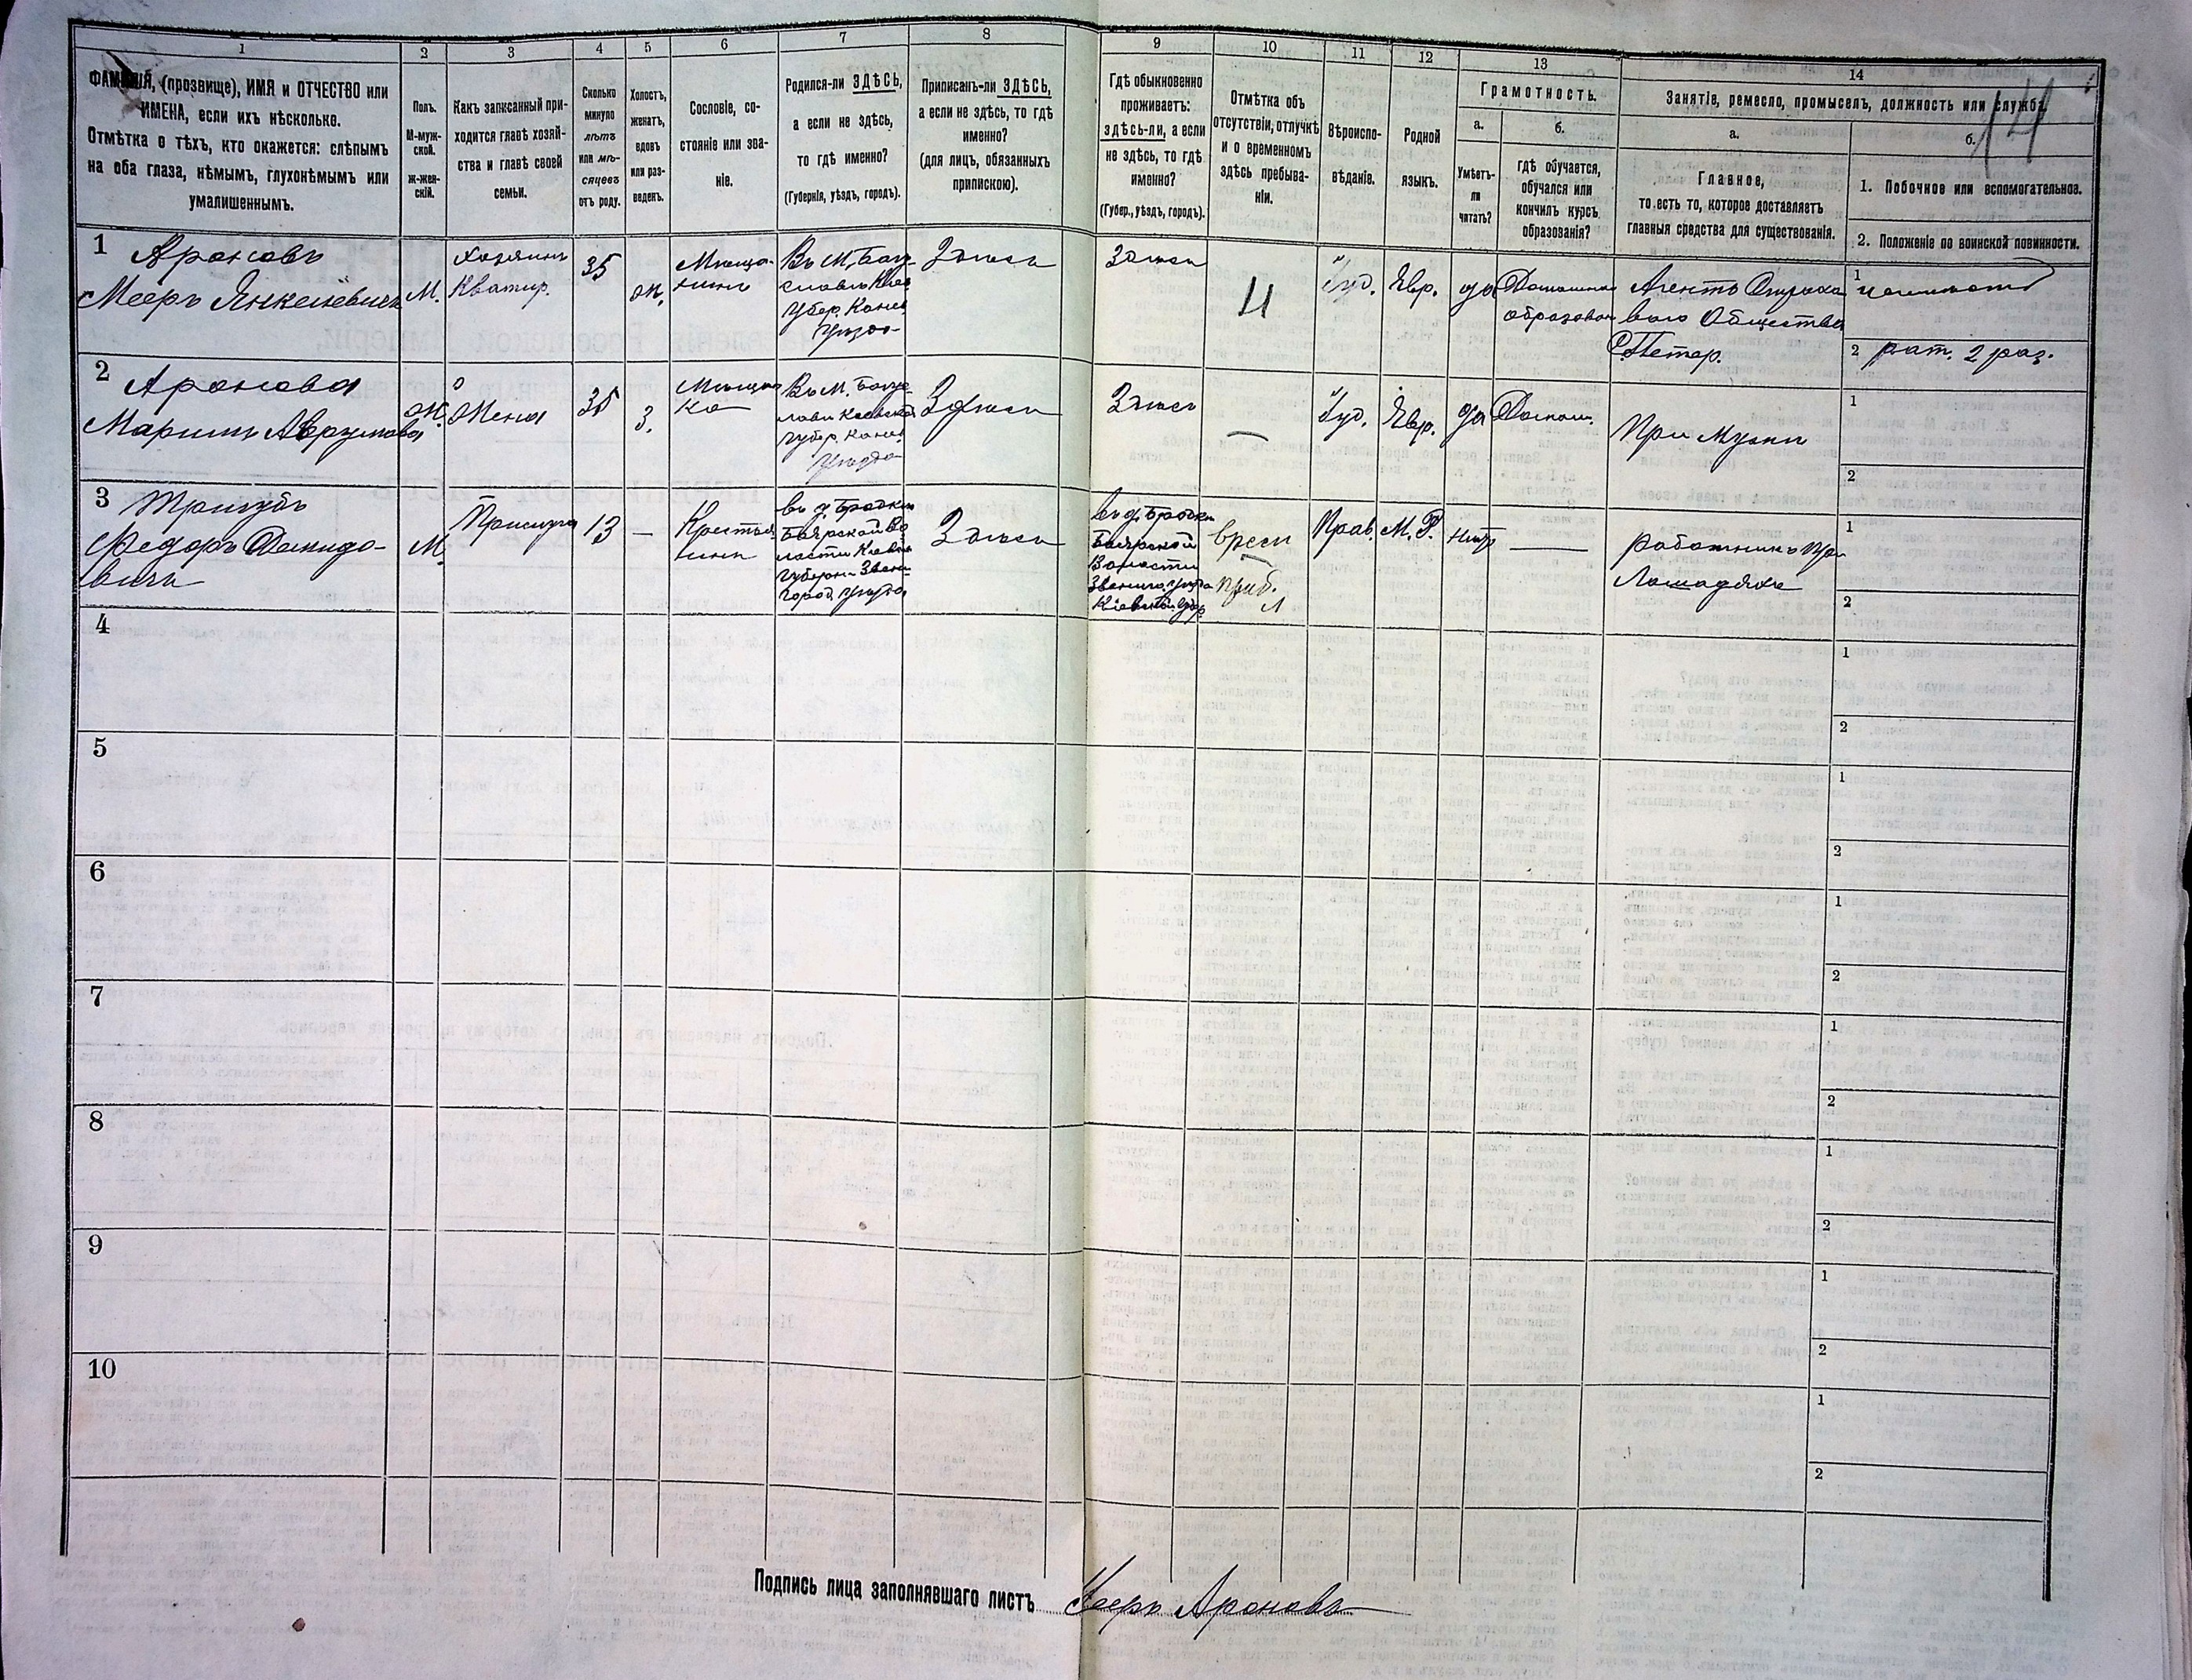 1
2
3
4
5
6
7
8
9
10
11
12
13
14
14
ФАМИЛІЯ, (прозвище), ИМЯ и ОТЧЕСТВО или
ИМЕНА, если ихъ нѣсколько.
Отмѣтка о тѣхъ, кто окажется: слѣпымъ
на оба глаза, нѣмымъ, глухонѣмымъ или
умалишеннымъ.
Полъ.
М-муж-
ской.
ж-жен-
скій.
Какъ записанный при-
ходится главѣ хозяй-
ства и главѣ своей
семьи.
Сколько
минуло
лѣтъ
или мѣ-
сяцевъ
отъ роду.
Холостъ,
женатъ,
вдовъ
или раз-
веденъ.
Сословіе, со-
стояніе или зва-
ніе.
Родился-ли ЗДѢСЬ,
а если не здѣсь,
то гдѣ именно?
(Губернія, уѣздъ, городъ).
Приписанъ-ли ЗДѢСЬ,
а если не здѣсь, то гдѣ
именно?
(для лицъ, обязанныхъ
припискою).
Гдѣ обыкновенно
проживаетъ:
здѣсь-ли, а если
не здѣсь, то гдѣ
именно?
(Губер., уѣздъ, городъ).
Отмѣтка объ
отсутствіи, отлучкѣ
и о временномъ
здѣсь пребыва-
ніи.
Вѣроиспо-
вѣданіе.
Родной
языкъ.
Грамотность.
а.
Умѣетъ-
ли
читать?
б.
гдѣ обучается,
обучался или
кончилъ курсъ
образованія?
Занятіе, ремесло, промыселъ, должность или служба.
а.
Главное,
то есть то, которое доставляетъ
главныя средства для существованія.
б.
1. Побочное или вспомогательное.
2. Положеніе по воинской повинности.
1 Ароновъ
Мееръ Янкелевичъ
М.
Хозяинъ
Квартир.
35
Ж.
Мѣща-
нинъ
Въ М. Богу-
славѣ Кіев
Губер. Канев
Уѣзда
Здѣсь
Здѣсь
Іуд.
Евр.
да
Домашнее
образован
Агентъ Страхо
вого Общества
С.Петер.
1
2 рат. 2 раз.
2 Аронова
Марьямъ Аврумова
Ж.
Жена
35
З.
Мѣщан
ка
Въ М. Богу-
славѣ Кіевской
Губер. Канев
Уѣзда
Здѣсь
Здѣсь
—
Іуд.
Евр.
да
Домаш.
При мужѣ
1
2
3 Тризубъ
Федоръ Демидо-
вичъ
М.
Прислуга
13
—
Крестья
нинъ
въ д. Бродки
Боярской Во
лости Кіевск
Губерн. Звени
город. уѣзда
Здѣсь
въ д. Бродки
Боярской
Волости
Звениго. уѣзда
Кіевской губер.
врем
преб.
Прав.
М. Р.
нѣтъ
—
работникъ при
Лошадяхъ
1
2
4
1
2
5
1
2
6
1
2
7
1
2
8
1
2
9
1
2
10
1
2
Подпись лица заполнявшаго листъ Мееръ Ароновъ